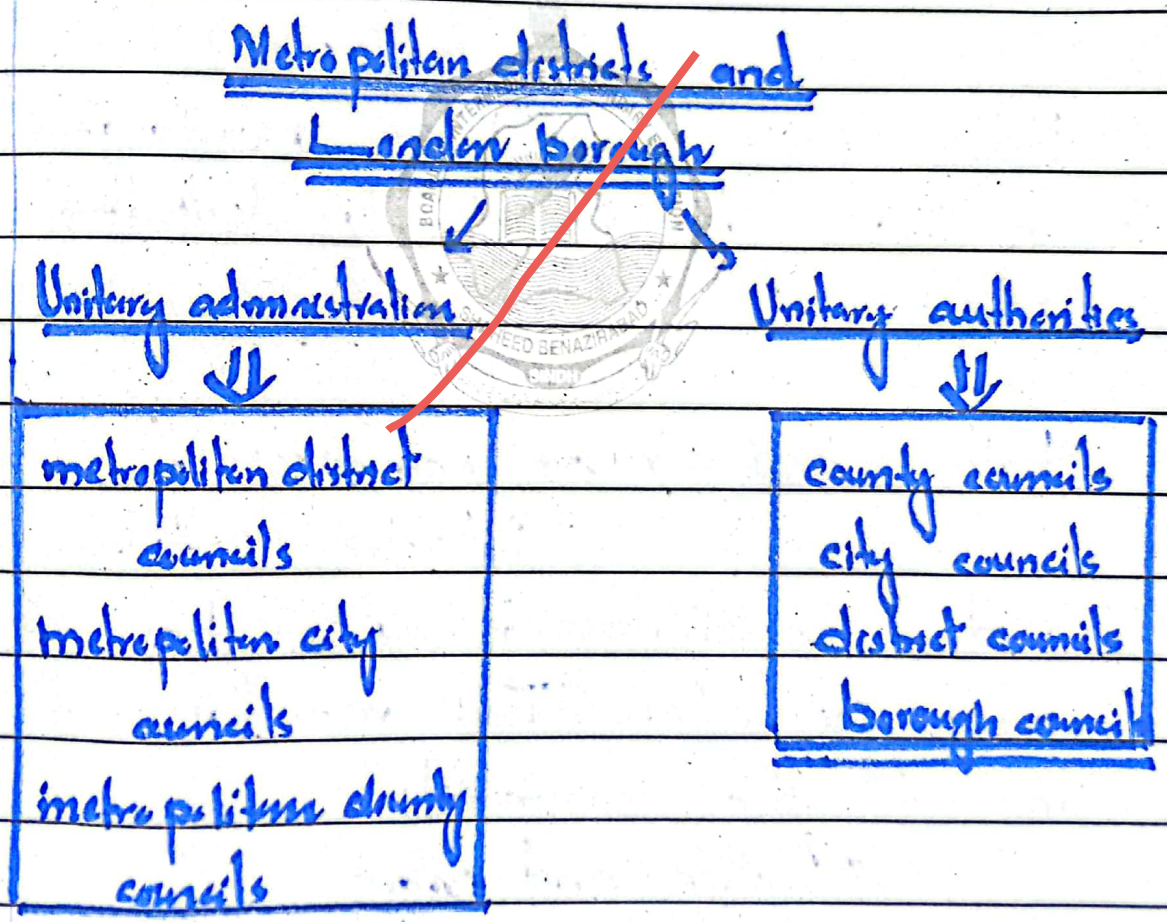 Metropolitan districts and
London borough
Unitary admnestration
Unitary authorities
metropolitan district
councils
metropolitan city
councils
metropolitan county
councils
county councils
city councils
district councils
borough council
SHAHEED BENAZIRABAD
SINDH